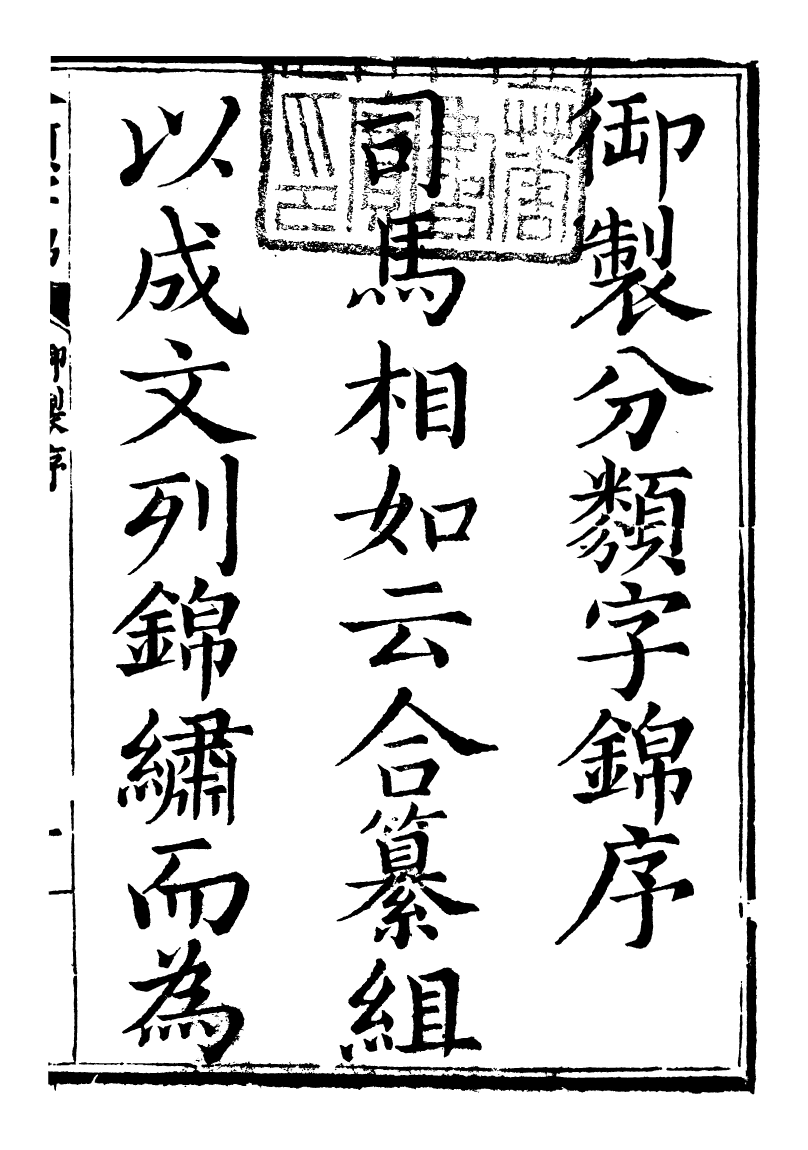 御製分類字錦序
司馬相如云合纂組
以成文列錦繡而為
御製序
一